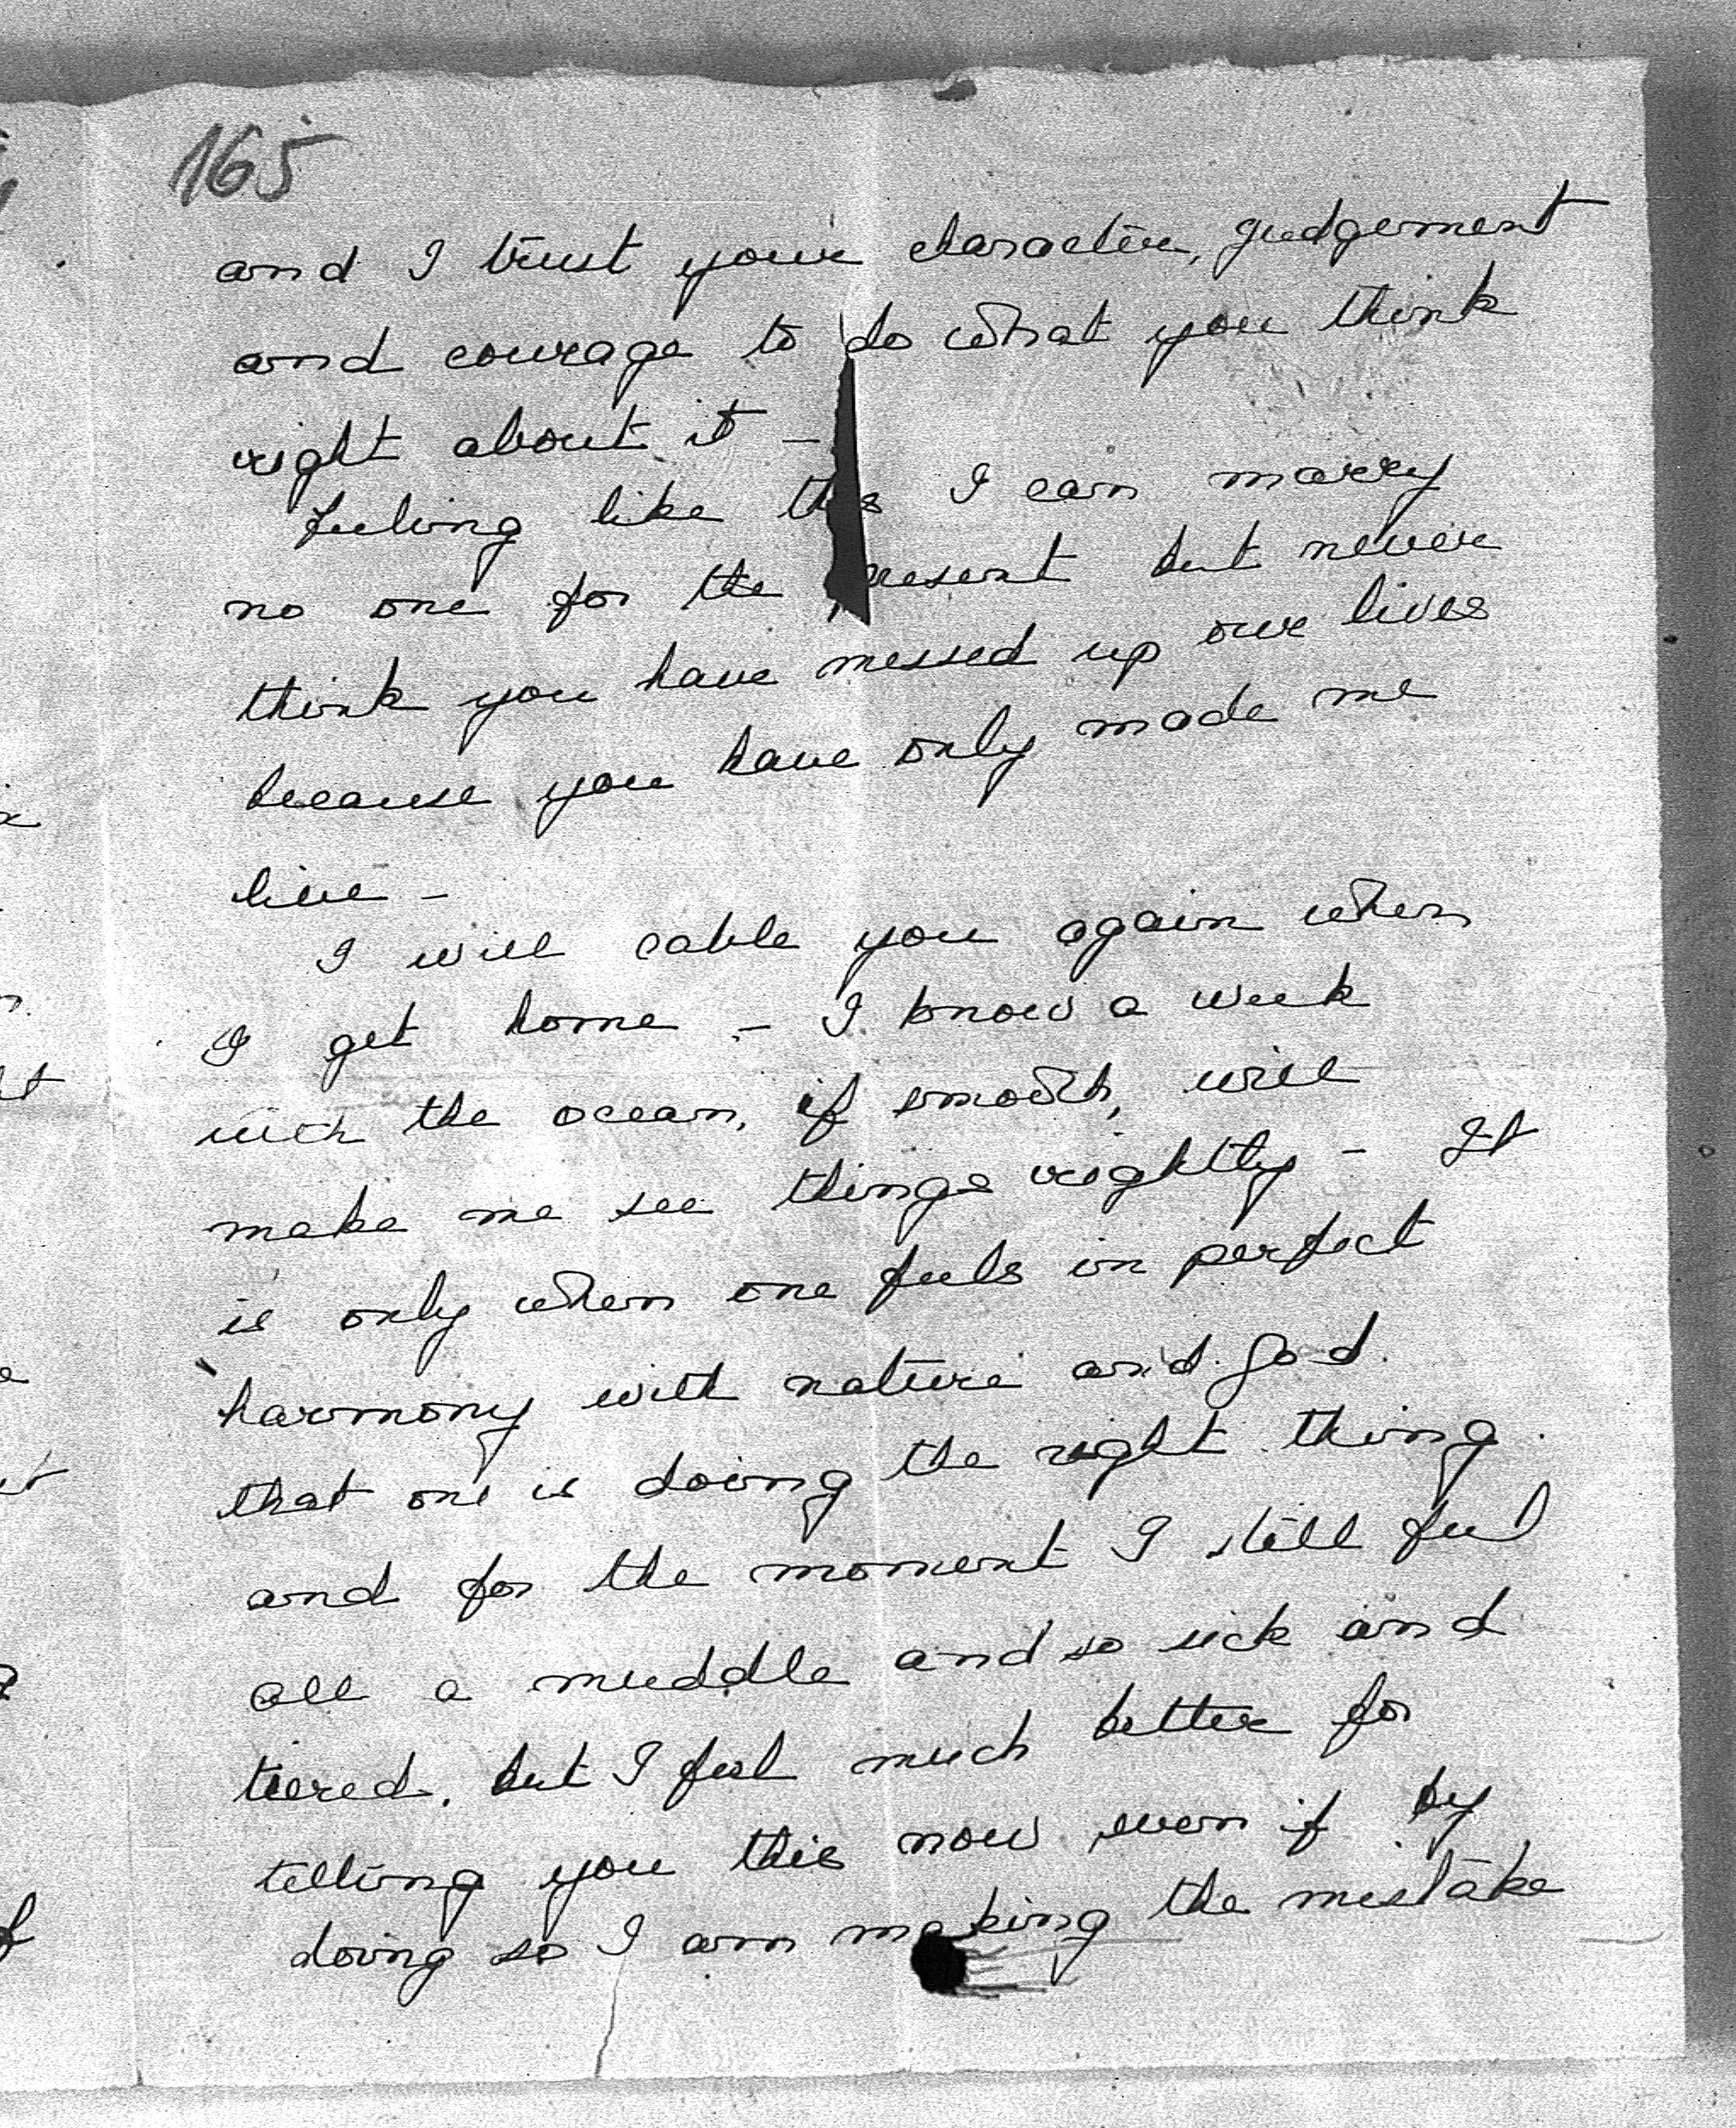 165
and I trust your character, judgement
and courage to do what you think
right about it –
feeling like this I can marry
no one for the present but never
think you have messed up our lives
because you have only made me
live –
I will cable you again when
I get home – I know a week
with the ocean, if smooth, will
make me see things rightly – It
is only when one feels in perfect
harmony with nature and God
that one is doing the right thing
and for the moment I still feel
all a muddle and so sick and
tiered. but I feel much better for
telling you this now even if by
doing so I am making the mistake